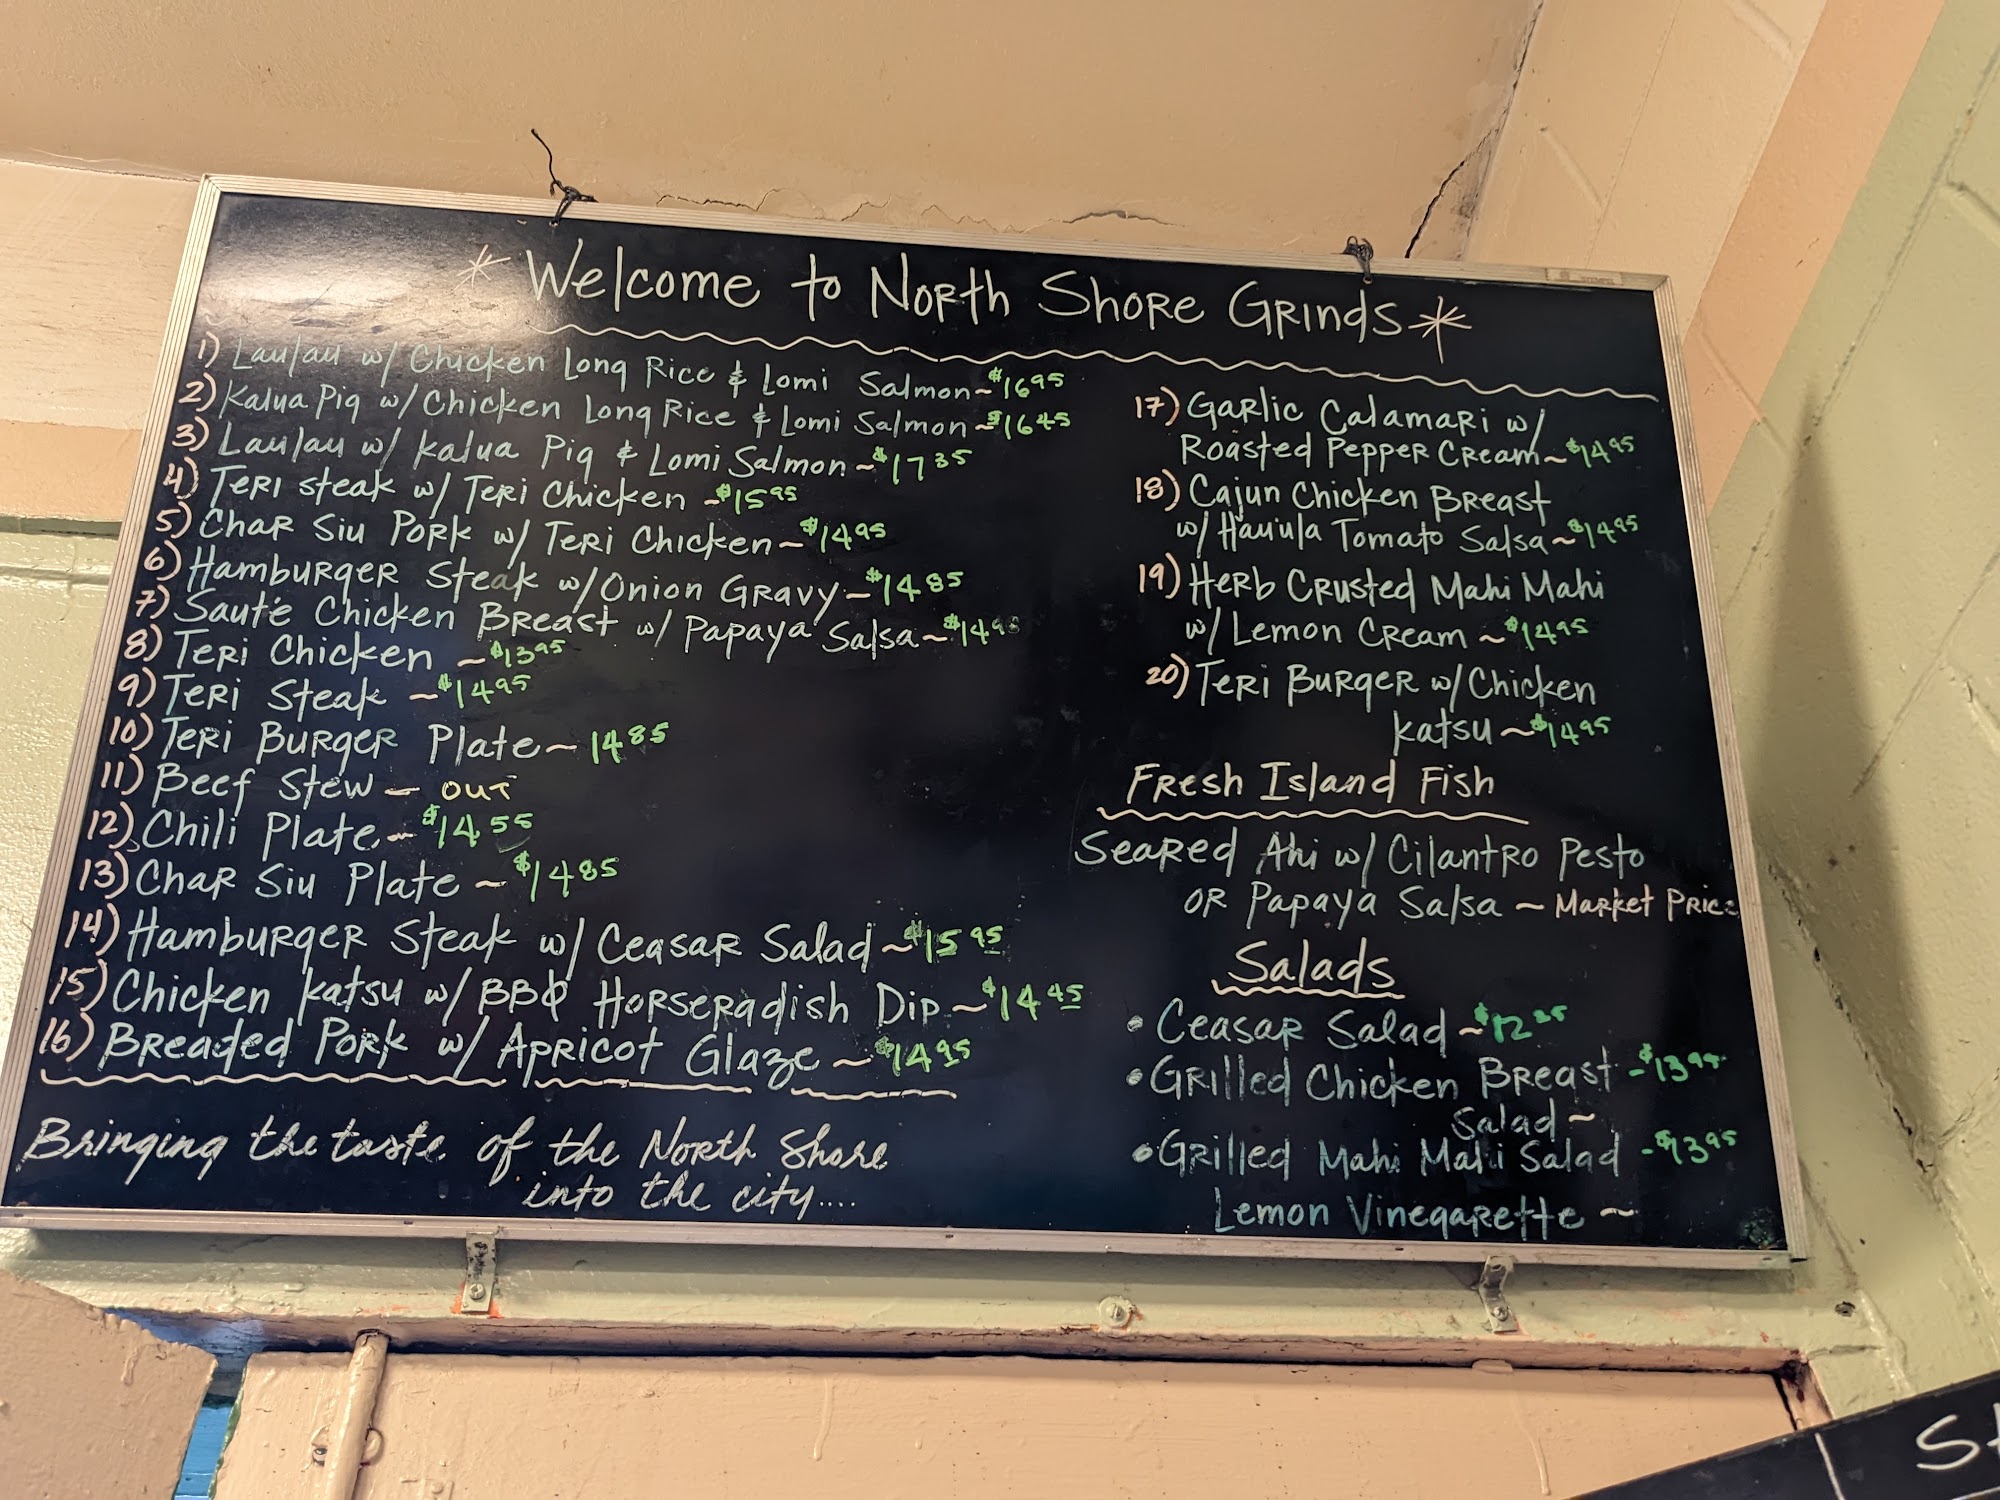 * Welcome to North Shore Grinds *
1) Laulau w/ Chicken Long Rice & Lomi Salmon ~ $16 95
2) Kalua Pig w/ Chicken Long Rice & Lomi Salmon ~ $16 45
3) Laulau w/ Kalua Pig & Lomi Salmon ~ $17 35
4) Teri Steak w/ Teri Chicken ~ $15 95
5) Char Siu Pork w/ Teri Chicken ~ $14 95
6) Hamburger Steak w/ Onion Gravy ~ $14 85
7) Sauté Chicken Breast w/ Papaya Salsa ~ $14
8) Teri Chicken ~ $13 95
9) Teri Steak ~ $14 95
10) Teri Burger Plate ~ 14 85
11) Beef Stew ~ OUT
12) Chili Plate ~ $14 55
13) Char Siu Plate ~ $14 85
14) Hamburger Steak w/ Ceasar Salad ~ $15 95
15) Chicken Katsu w/ BBQ Horseradish Dip ~ $14 45
16) Breaded Pork w/ Apricot Glaze ~ $14 95
Bringing the taste of the North Shore
into the city....
17) Garlic Calamari w/
Roasted Pepper Cream ~ $14 95
18) Cajun Chicken Breast
w/ Hau'ula Tomato Salsa ~ $14 95
19) Herb Crusted Mahi Mahi
w/ Lemon Cream ~ $14 95
20) Teri Burger w/ Chicken
Katsu ~ $14 95
Fresh Island Fish
Seared Ahi w/ Cilantro Pesto
or Papaya Salsa ~ Market Price
Salads
• Ceasar Salad ~ $12
• Grilled Chicken Breast - $13 95
Salad ~
• Grilled Mahi Mahi Salad - $13 95
Lemon Vinegarette ~